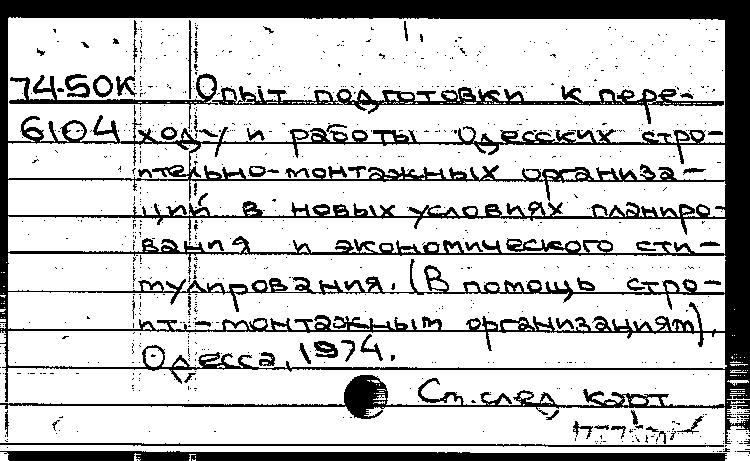 74-50К Опыт подготовки к пере-
6104 ходу и работы Одесских стро-
ительно-монтажных организа-
ций в новых условиях планиро-
вания и экономического сти-
мулирования. (В помощь стро-
ит.-монтажным организациям).
Одесса, 1974.
См. след карт